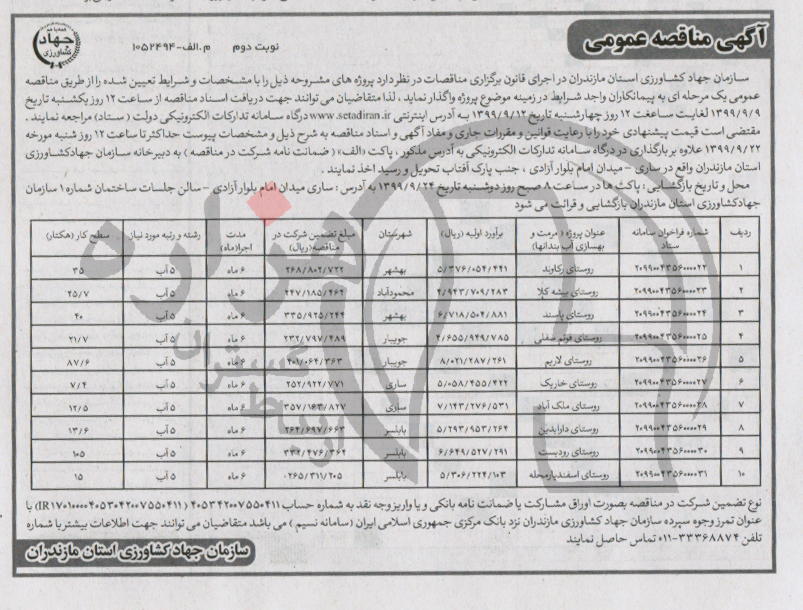 آگهی مناقصه عمومی
نوبت دوم م.الف-۱۰۵۲۴۹۴
جهاد
کشاورزی
سازمان جهاد کشاورزی استان مازندران در اجرای قانون برگزاری مناقصات در نظر دارد پروژه های مشروحه ذیل را با مشخصات و شرایط تعیین شده را از طریق مناقصه
عمومی یک مرحله ای به پیمانکاران واجد شرایط در زمینه موضوع پروژه واگذار نماید ، لذا متقاضیان می توانند جهت دریافت اسناد مناقصه از ساعت ۱۲ روز یکشنبه تاریخ
۱۳۹۹/۹/۹ لغایت ساعفت ۱۲ روز چهارشنبه تاریخ ۱۳۹۹/۹/۱۲ به آدرس اینترنتی www.setadiran.ir درگاه سامانه تدارکات الکترونیکی دولت ( ستاد) مراجعه نمایند .
مقتضی است قیمت پیشنهادی خود را با رعایت قوانین و مقررات جاری و مفاد آگهی و اسناد مناقصه به شرح ذیل و مشخصات پیوست حداکثر تا ساعت ۱۲ روز شنبه مورخه
۱۳۹۹/۹/۲۲ علاوه بر بارگذاری در درگاه سامانه تدارکات الکترونیکی به آدرس مذکور ، پاکت «الف» ( ضمانت نامه شرکت در مناقصه ) به دبیرخانه سازمان جهادکشاورزی
استان مازندران واقع در ساری – میدان امام بلوار آزادی ، جنب پارک آفتاب تحویل و رسید اخذ نمایند .
محل و تاریخ بازگشایی : پاکت ها در ساعت ۸ صبح روز دوشنبه تاریخ ۱۳۹۹/۹/۲۴ به آدرس : ساری میدان امام بلوار آزادی – سالن جلسات ساختمان شماره ۱ سازمان
جهادکشاورزی استان مازندران بازگشایی و قرائت می شود
ردیف شماره فراخوان سامانه ستاد عنوان پروژه ( مرمت و بهسازی آب بندانها) برآورد اولیه (ریال) شهرستان مبلغ تضمین شرکت در مناقصه(ریال) مدت اجرا(ماه) رشته و رتبه مورد نیاز سطح کار (هکتار)
۱ ۲۰۹۹۰۰۴۳۵۶۰۰۰۰۲۲ روستای رکاوند ۵/۳۷۶/۰۵۴/۴۴۱ بهشهر ۲۶۸/۸۰۲/۷۲۲ ۶ ماه ۵ آب ۳۵
۲ ۲۰۹۹۰۰۴۳۵۶۰۰۰۰۲۳ روستای بیشه کلا ۴/۹۴۳/۷۰۹/۲۸۳ محمودآباد ۲۴۷/۱۸۵/۴۶۴ ۶ ماه ۵ آب ۲۵/۷
۳ ۲۰۹۹۰۰۴۳۵۶۰۰۰۰۲۴ روستای پاسند ۶/۷۱۸/۵۰۴/۸۸۱ بهشهر ۳۳۵/۹۲۵/۲۴۴ ۶ ماه ۵ آب ۴۰
۴ ۲۰۹۹۰۰۴۳۵۶۰۰۰۰۲۵ روستای فوتم سفلی ۴/۶۵۵/۹۴۹/۷۸۵ جویبار ۲۳۲/۷۹۷/۴۸۹ ۶ ماه ۵ آب ۲۱/۷
۵ ۲۰۹۹۰۰۴۳۵۶۰۰۰۰۲۶ روستای لاریم ۸/۰۲۱/۲۸۷/۲۶۱ جویبار ۴۰۱/۰۶۴/۳۶۳ ۶ ماه ۵ آب ۸۷/۶
۶ ۲۰۹۹۰۰۴۳۵۶۰۰۰۰۲۷ روستای خاریک ۵/۰۵۸/۴۵۵/۴۲۲ ساری ۲۵۲/۹۲۲/۷۷۱ ۶ ماه ۵ آب ۷/۴
۷ ۲۰۹۹۰۰۴۳۵۶۰۰۰۰۲۸ روستای ملک آباد ۷/۱۴۳/۲۷۶/۵۳۱ ساری ۳۵۷/۱۶۳/۸۲۷ ۶ ماه ۵ آب ۱۲/۵
۸ ۲۰۹۹۰۰۴۳۵۶۰۰۰۰۲۹ روستای دارابدین ۵/۲۹۳/۹۵۳/۲۶۴ بابلسر ۲۶۴/۶۹۷/۶۶۳ ۶ ماه ۵ آب ۱۳/۶
۹ ۲۰۹۹۰۰۴۳۵۶۰۰۰۰۳۰ روستای رودبست ۶/۶۴۹/۵۲۷/۲۹۱ بابلسر ۳۳۲/۴۷۶/۳۶۴ ۶ ماه ۵ آب ۱۰۵
۱۰ ۲۰۹۹۰۰۴۳۵۶۰۰۰۰۳۱ روستای اسفندیارمحله ۵/۳۰۶/۲۲۴/۱۰۳ بابلسر ۲۶۵/۳۱۱/۲۰۵ ۶ ماه ۵ آب ۱۵
نوع تضمین شرکت در مناقصه بصورت اوراق مشارکت یا ضمانت نامه بانکی و یا واریز وجه نقد به شماره حساب ۴۰۵۳۴۲۰۰۷۵۵۰۴۱۱ (IR۱۷۰۱۰۰۰۰۴۰۵۳۰۴۲۰۰۷۵۵۰۴۱۱) با
عنوان تمرز وجوه سپرده سازمان جهاد کشاورزی مازندران نزد بانک مرکزی جمهوری اسلامی ایران (سامانه نسیم ) می باشد متقاضیان می توانند جهت اطلاعات بیشتر با شماره
تلفن ۳۳۳۶۸۸۷۴-۰۱۱ تماس حاصل نمایند
سازمان جهاد کشاورزی استان مازندران
هزاره